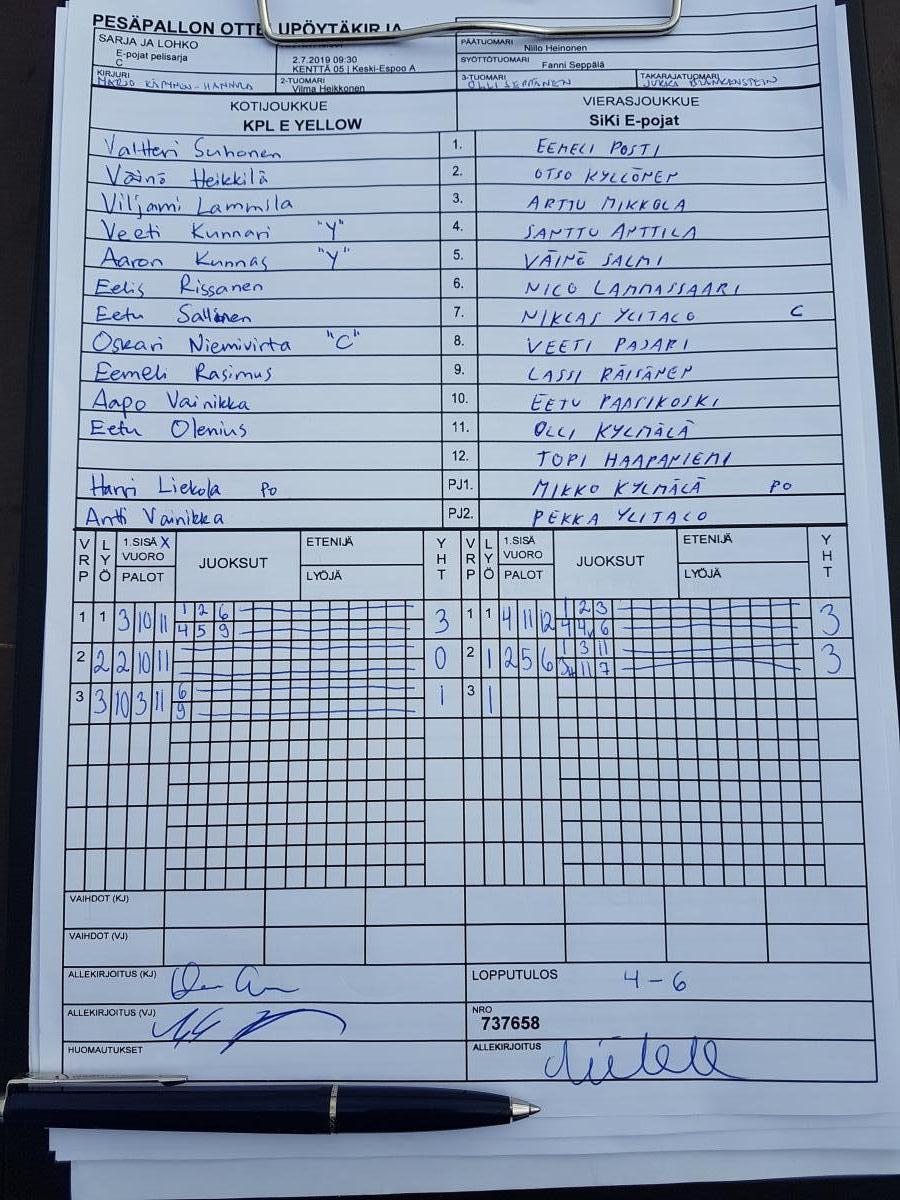 PESÄPALLON OTTELUPÖYTÄKIRJA
SARJA JA LOHKO
E-pojat pelisarja
C
2.7.2019 09:30
KENTTÄ 05 | Keski-Espoo A
PÄÄTUOMARI Niilo Heinonen
SYÖTTÖTUOMARI Fanni Seppälä
KIRJURI
2-TUOMARI
Vilma Heikkonen
3-TUOMARI
OLLI SEPPÄNEN
TAKARAJATUOMARI
JUKKA
KOTIJOUKKUE
KPL E YELLOW
VIERASJOUKKUE
SiKi E-pojat
Valtteri Suhonen 1. EEMELI POSTI
Väinö Heikkilä 2. OTSO KYLLÖNEN
Viljami Lammila 3. ARTTU MIKKOLA
Veeti Kunnari "Y" 4. SANTTU ANTTILA
Aaron Kunnas "Y" 5. VÄINÖ SALMI
Eelis Rissanen 6. NICO LAMMASSAARI
Eetu Sallinen 7. NIKLAS YLITALO C
Oskari Niemivirta "C" 8. VEETI PAJARI
Eemeli Rasimus 9. LASSI RÄISÄNEN
Aapo Vainikka 10. EETU PAASIKOSKI
Eetu Olenius 11. OLLI KYLMÄLÄ
12. TOPI HAAPANIEMI
Harri Liekola PO PJ1. MIKKO KYLMÄLÄ PO
Antti Vainikka PJ2. PEKKA YLITALO
VRP LYÖ 1.SISÄ X VUORO PALOT JUOKSUT ETENIJÄ LYÖJÄ YHT VRP LYÖ 1.SISÄ VUORO PALOT JUOKSUT ETENIJÄ LYÖJÄ YHT
1 1 3 10 11 1 2 6 3 1 1 4 11 12 1 2 3 3
4 5 9 4 4 6
2 2 2 10 11 0 2 1 2 5 6 1 3 11 3
3 11 7
3 3 10 3 11 6 1 3 1
9
VAIHDOT (KJ)
VAIHDOT (VJ)
ALLEKIRJOITUS (KJ)
LOPPUTULOS 4-6
ALLEKIRJOITUS (VJ)
NRO
737658
HUOMAUTUKSET
ALLEKIRJOITUS